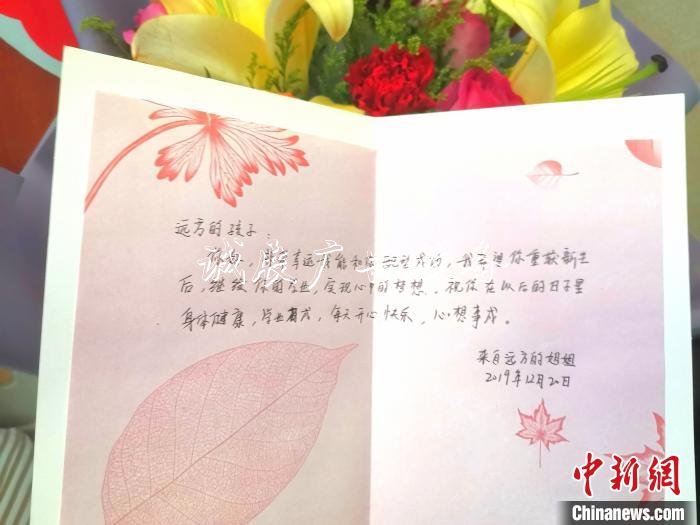 远方的孩子:
你好,很幸运我能和你配型成功,我希望你重获新生
后,继续你的学业,实现心中的梦想,祝你在以后的日子里
身体健康,学业有成,每天开心快乐,心想事成。
来自远方的姐姐
2019年12月20日
诚 广
中新網
Chinanews.com